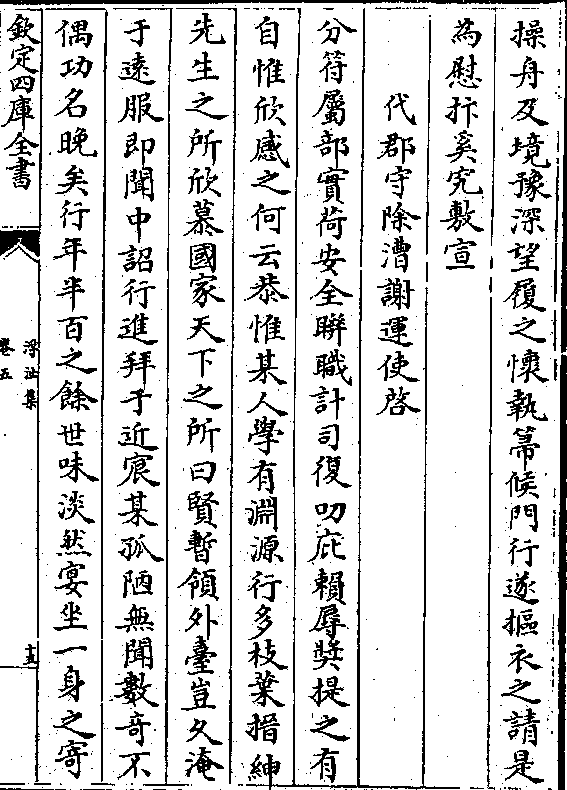 操舟及境豫深望履之懐執箒候門行遂摳衣之請是
為慰抃奚究敷宣
代郡守除漕謝運使啓
分符屬部實荷安全聨職計司復叨庇賴辱奬提之有
自惟欣感之何云恭惟某人學有淵源行多枝葉搢紳
先生之所欣慕國家天下之所曰賢暫領外臺豈久淹
于逺服即聞中詔行進拜于近扆某孤陋無聞數奇不
偶功名晚矣行年半百之餘世味淡然宴坐一身之寄
欽定四庫全書
浮沚集
卷五
十五